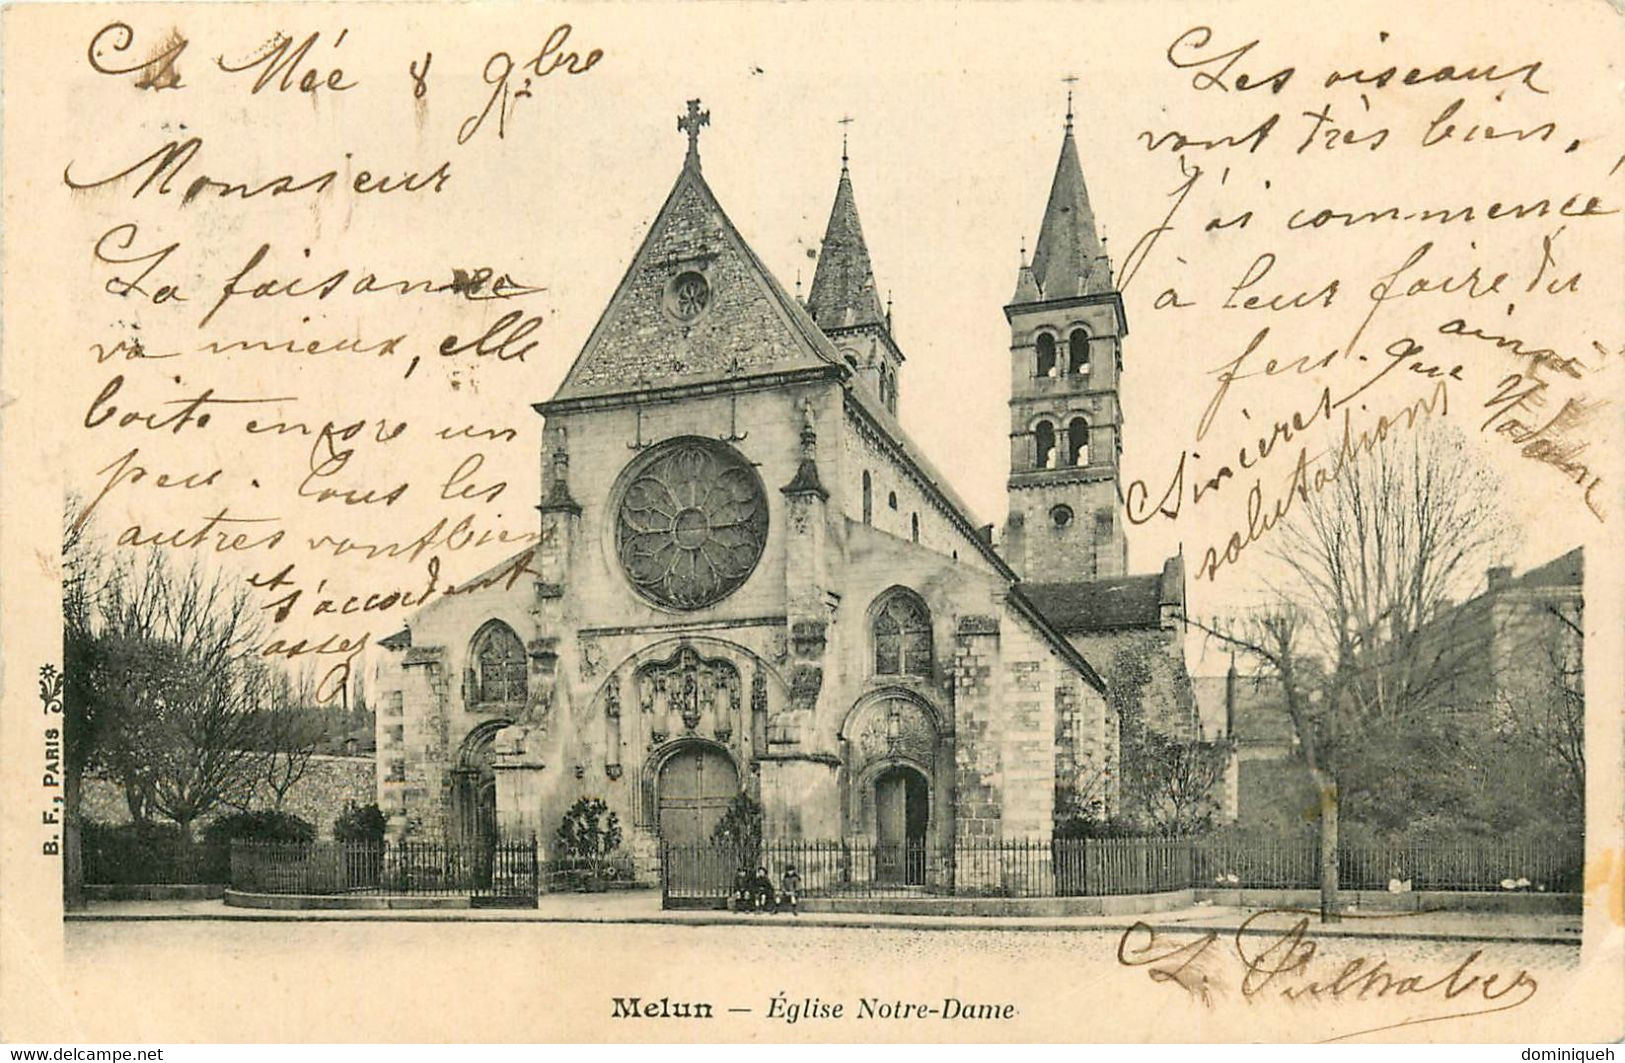 Le Mée 8 9bre
Monsieur
La faisane
va mieux, elle
boite encore un
peu. Tous les
autres vont bien
et s'accordent
assez
Les oiseaux
vont très bien,
J'ai commencé
à leur faire du
fer. ainsi
que Madame
Sincères
salutations
L.
B. F., PARIS
Melun — Église Notre-Dame
www.delcampe.net
dominiqueh